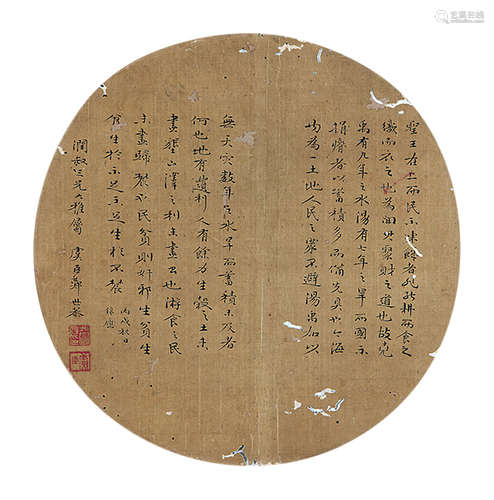 聖王在上而民不凍飢者非能耕而食之
織而衣之也為開其資財之道也故堯
禹有九年之水湯有七年之旱而國亡
捐瘠者以蓄積多而備先具也今海
均為一土地人民之眾不避湯禹加以
無天灾数年之水旱而蓄積未及者
何也地有遺利人有餘力生穀之土未
盡墾山澤之利未盡出也游食之民
未盡歸農也民貧則奸邪生貧生
生於不足不足生於不農
丙戌秋日
潤叔三兄大雅屬 虞臣鄭世恭